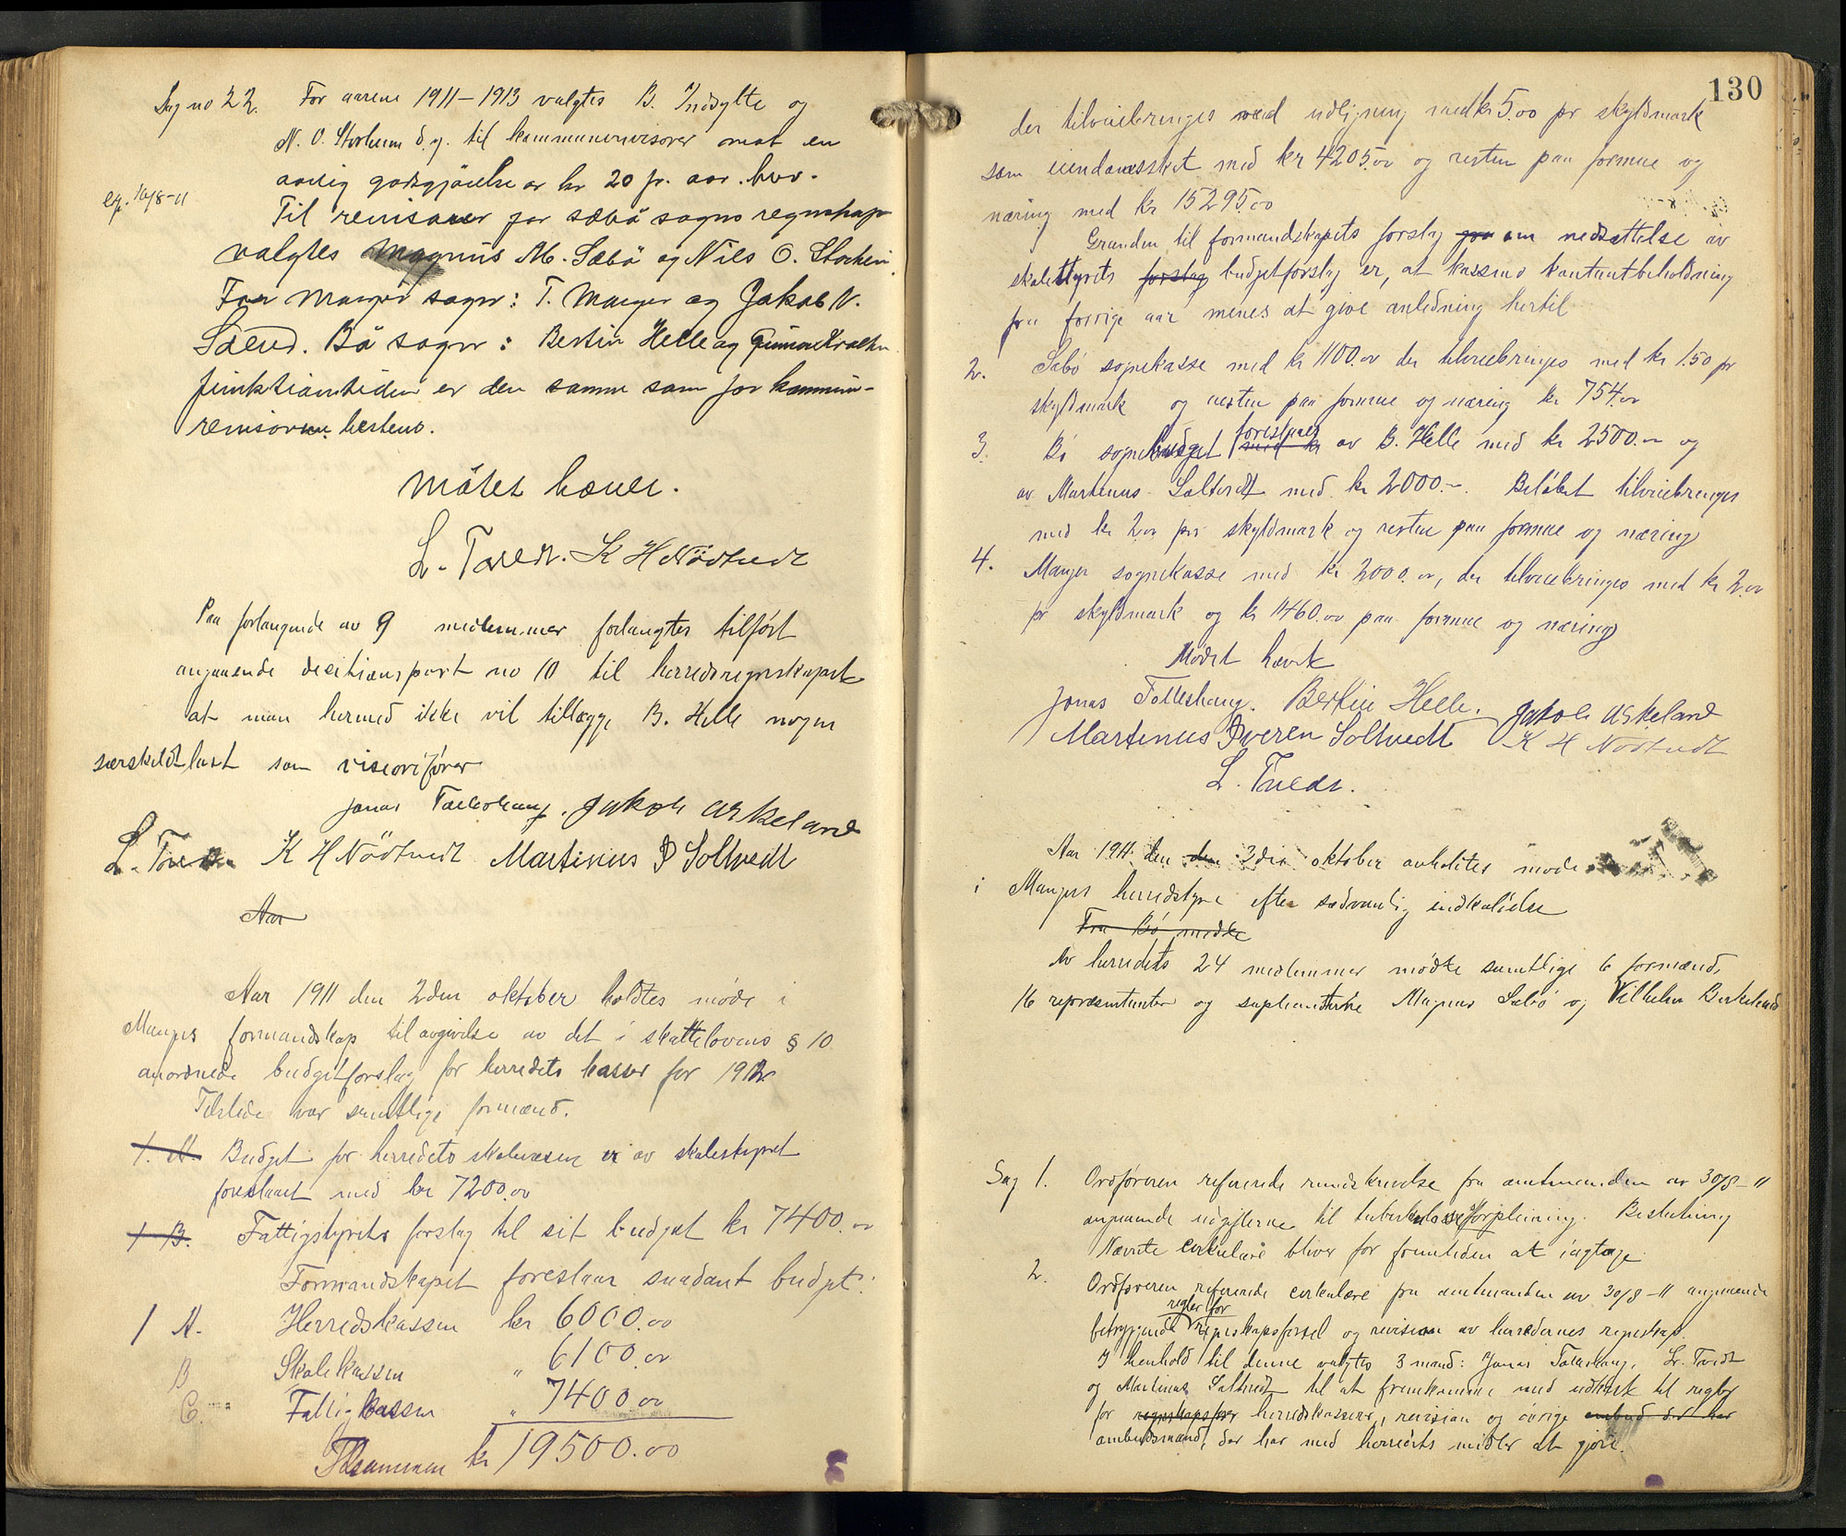 Sag no 22. For aarene 1911–1913 valgtes B. Indsylte og
N. O. Storheim d.y. til kommunerevisorer imot en
aarlig godtgjörelse av kr 20 pr. aar hver.
exp. 16/8-11
Til revisorer for Sæbö sogns regnskap
valgtes Magnus M. Sæbö og Nils O. Storheim.
For Manger sogn: T. Manger og Jakob N.
Bö sogn: Bertin Helle og
funktionstiden er den samme som for kommune-
revisorene bestemt.
Mötet hævet.
L. Tvedt. K H Nödtvedt
Paa forlangende av 9 medlemmer forlangtes tilført
angaaende decisionspost no 10 til herredsregnskapet
at man hermed ikke vil tillægge B. Helle nogen
særskildt last som viseordfører
Jonas Tolleshaug. Jakob Askeland
L. Tvedt K H Nödtvedt Martinus I Soltvedt
Aar
Aar 1911 den 2den oktober holdtes møde i
Mangers formandskap til avgivelse av det i skattelovens § 10
anordnede budgetforslag for herredets kasser for 1912
Tilstede var samtlige formænd.
1. A. Budget for herredets skolevæsen er av skolestyret
foreslaaet med kr 7200.00
1 B. Fattigstyrets forslag til sit budget kr 7400.00
Formandskapet foreslaar saadant budget:
1 A. Herredskassen kr 6000.00
B Skolekassen " 6100.00
C. Fattigkassen " 7400.00
Tilsammen kr 19500.00
130
der tilveiebringes ved utligning med kr 5.00 pr skyldmark
som eiendomsskat med kr 4205.00 og resten paa formue og
næring med kr 15295.00
Grunden til formandskapets forslag paa om nedsættelse av
skolestyrets forslag budgetforslag er, at kassens kontantbeholdning
fra forrige aar menes at give anledning hertil
2. Sæbö sognekasse med kr 1100.00 der tilveiebringes med kr 1.50 pr
skyldmark og resten paa formue og næring kr 754.00
3. Bö sognebudget med kr foreslaaes av B. Helle med kr 2500.– og
av Martinus Soltvedt med kr 2000.–. Beløbet tilveiebringes
med kr 2.00 pr skyldmark og resten paa formue og næring
4. Manger sognekasse med kr 2000.00, der tilveiebringes med kr 2.00
pr skyldmark og kr 1460.00 paa formue og næring
Mødet hævet
Jonas Tolleshaug. Bertin Helle. Jakob Askeland
Martinus Iversen Soltvedt K H Nödtvedt
L. Tvedt.
Aar 1911 den den 3die oktober avholdtes møde
i Mangers herredstyre efter sædvanlig indkaldelse
Fra Bö mødte
Av herredets 24 medlemmer mødte samtlige 6 formænd,
16 repræsentanter og suplianterne Magnus Sæbö og Vilhelm Birkeland
Sag 1. Ordføreren refererede rundskrivelse fra amtmanden av 30/8-11
angaaende udgifterne til tuberkuloseforpleining. Beslutning
Nævnte cirkulære bliver for fremtiden at iagttage.
2. Ordføreren refererede cirkulære fra amtmanden av 30/8-11 angaaende
regler for
betryggende regnskapsførsel og revision av herredernes regnskap.
I henhold til denne valgtes 3 mand: Jonas Tolleshaug, L. Tvedt
og Martinus Soltvedt til at fremkomme med udkast til regler
for regnskapsfører herredskasserer, revision og øvrige ombud der har
ombudsmænd, der har med herredets midler at gjøre.